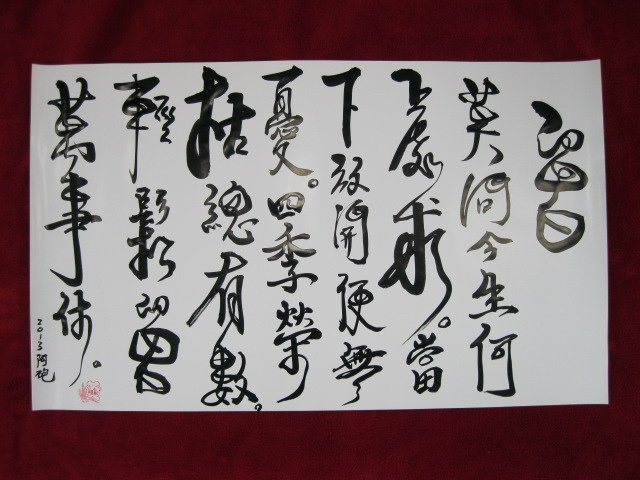 莫問今生何
處求。當
下放開便無
憂。四季榮
枯總有數。
輕鬆
萬事休。
2013 阿砲